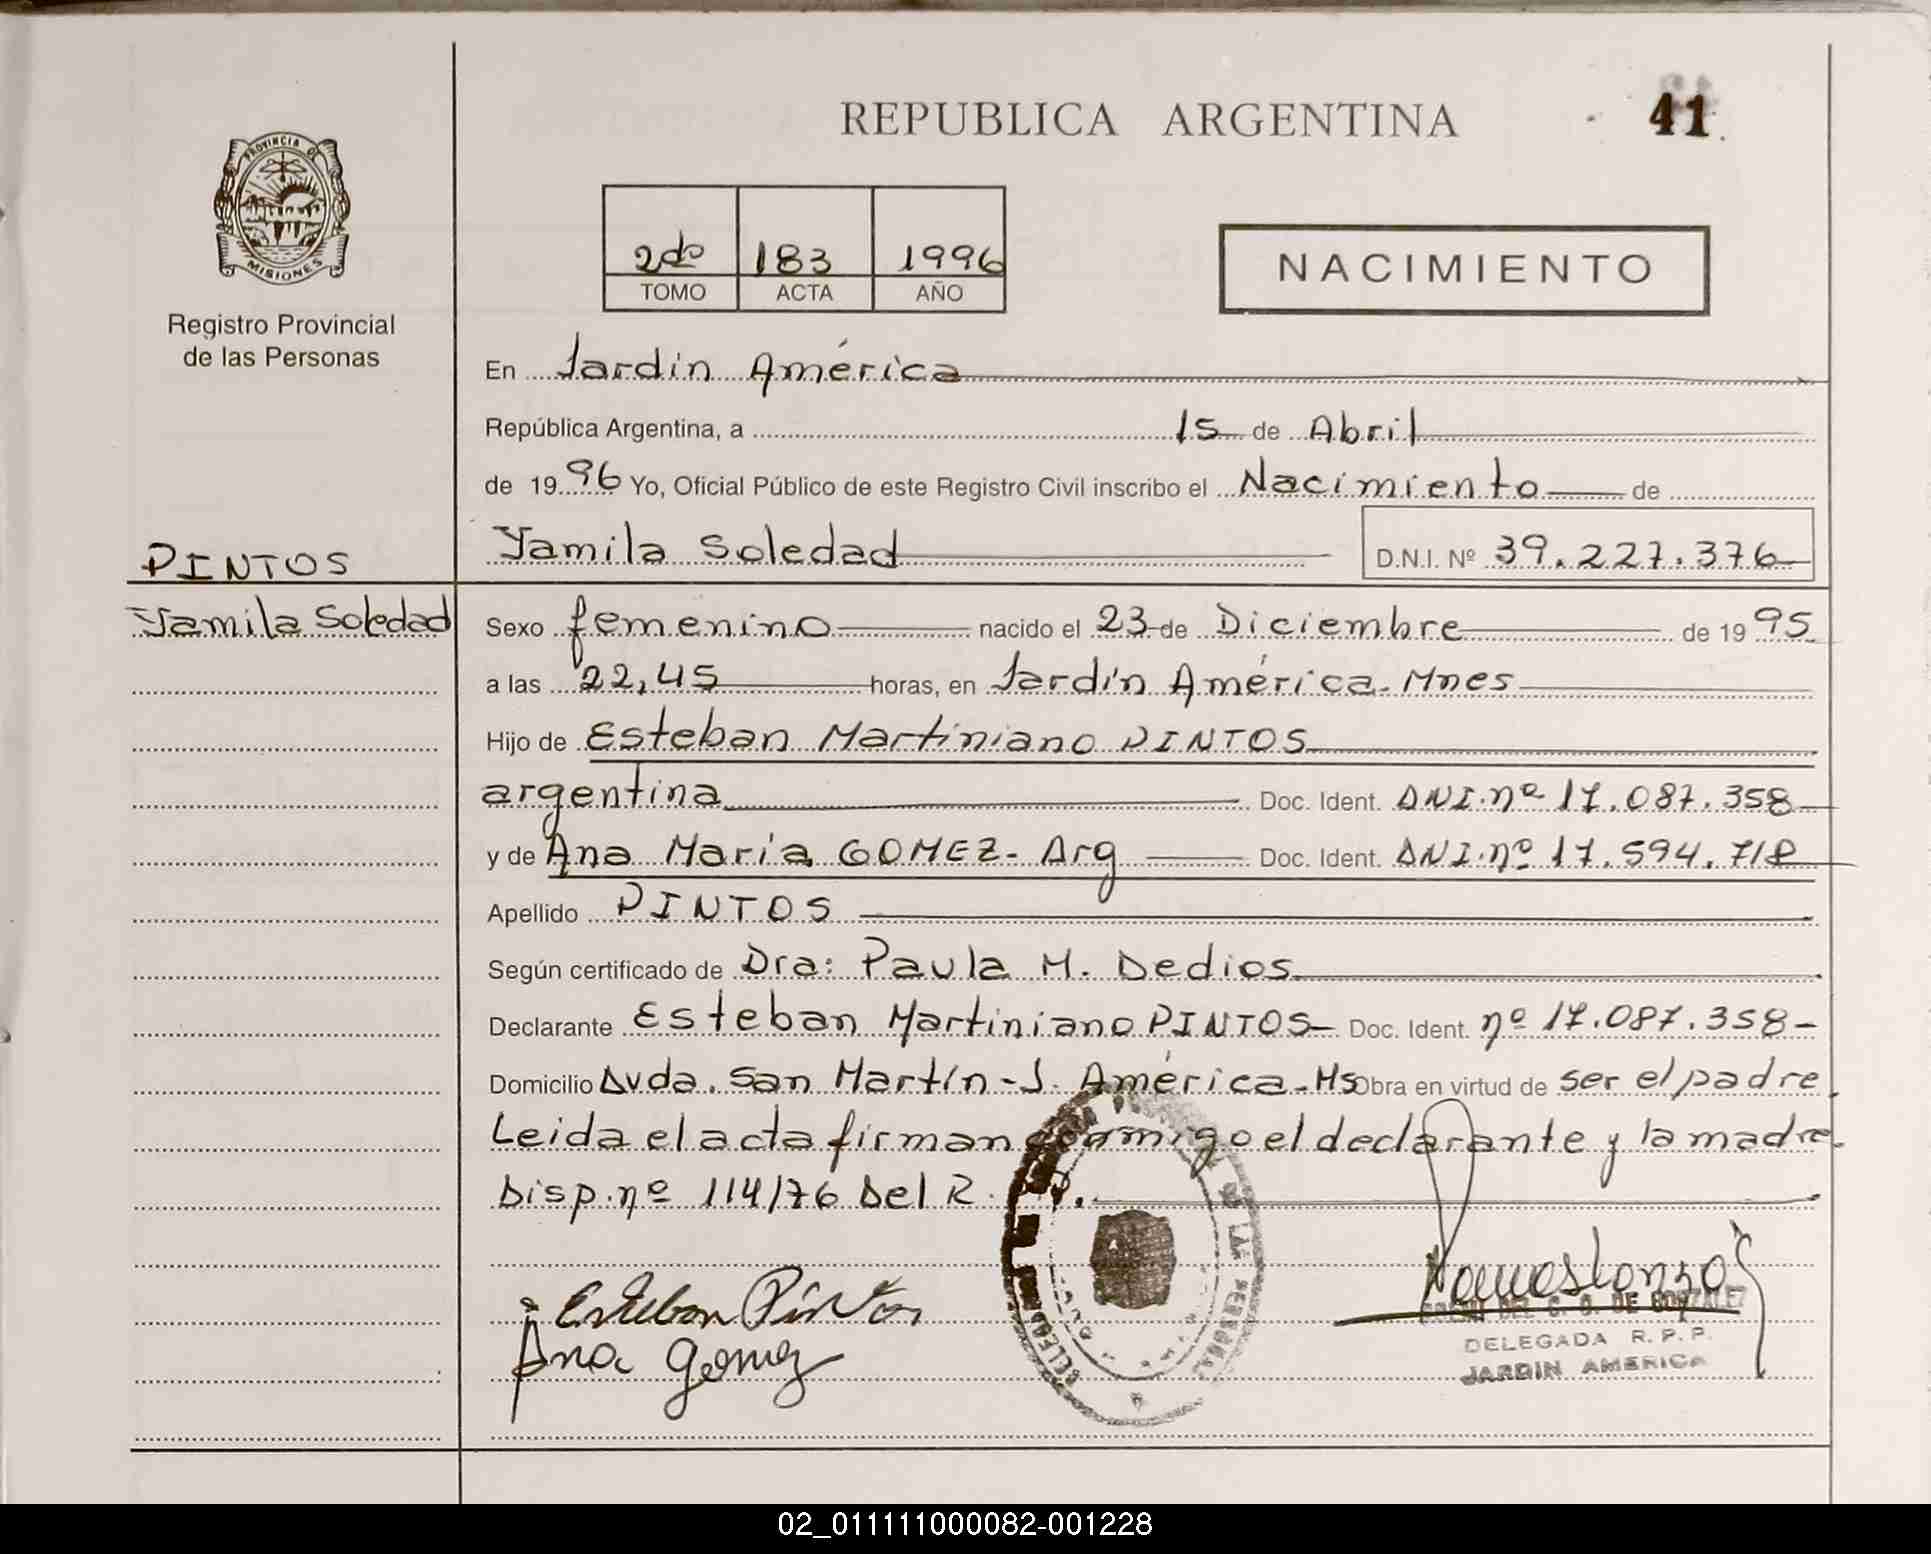 REPUBLICA ARGENTINA
41
PROVINCIA DE
MISIONES
Registro Provincial
de las Personas
2do 183 1996
TOMO ACTA AÑO
NACIMIENTO
En Jardín América
República Argentina, a 15 de Abril
de 1996 Yo, Oficial Público de este Registro Civil inscribo el Nacimiento de
Yamila Soledad D.N.I. Nº 39.227.376
PINTOS
Yamila Soledad
Sexo femenino nacido el 23 de Diciembre de 1995
a las 22,45 horas, en Jardín América. Mnes
Hijo de Esteban Martiniano PINTOS
argentina Doc. Ident. DNI.nº 17.087.358
y de Ana Maria GOMEZ- Arg Doc. Ident. DNI.nº 17.594.718
Apellido PINTOS
Según certificado de Dra: Paula M. Dedios
Declarante Esteban Martiniano PINTOS Doc. Ident. nº 17.087.358-
Domicilio Avda. San Martín-J. América-Ms Obra en virtud de ser el padre
Leida el acta firman conmigo el declarante y la madre
Disp.nº 114/76 Del R. P.
Esteban Pintos
Ana Gomez
DE GONZALEZ
DELEGADA R. P. P.
JARDIN AMERICA
02_011111000082-001228